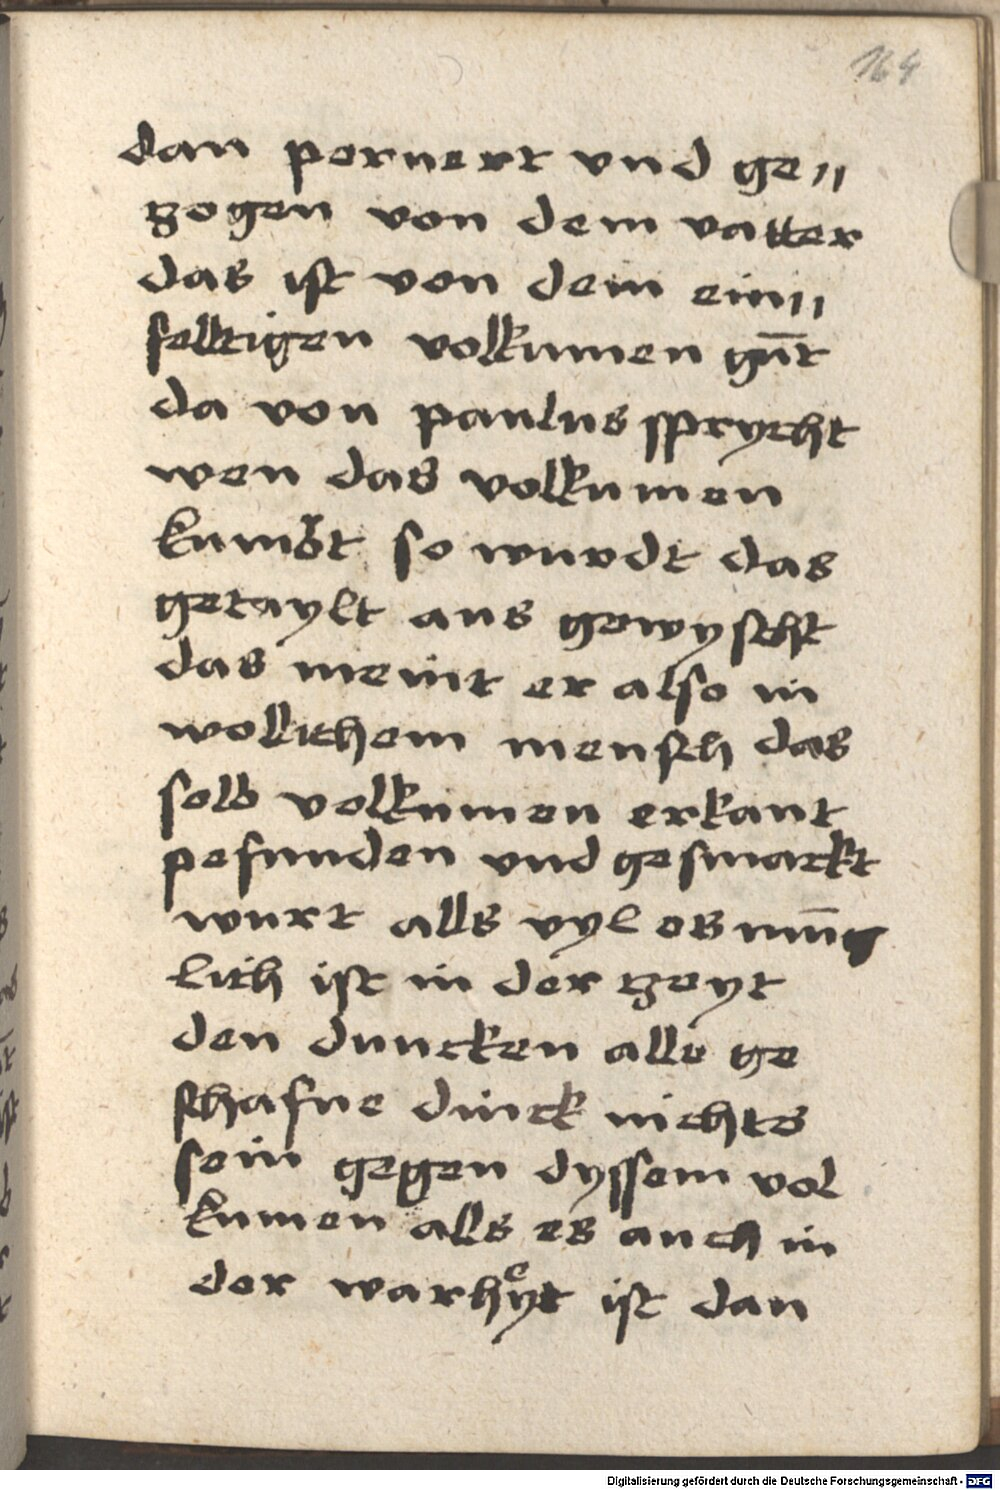 164
dan pornert vnd ge〃
zogen von dem vatter
das ist von dem ein〃
felltigen vollkumen gūt
da von paulus sprycht
wen das vollkumen
kumbt so wurdt das
getaylt aus gewyscht
das meint er also in
wollichem mensch das
selb vollkumen erkant
pefunden vnd gesmackt
wurt alls vyl es mūg
lich ist in der zeyt
den duncken alle ge
schafne dinck nichts
sein gegen dyssem vol
kumen alls es auch in
der warheyt ist dan
Digitalisierung gefördert durch die Deutsche Forschungsgemeinschaft - DFG